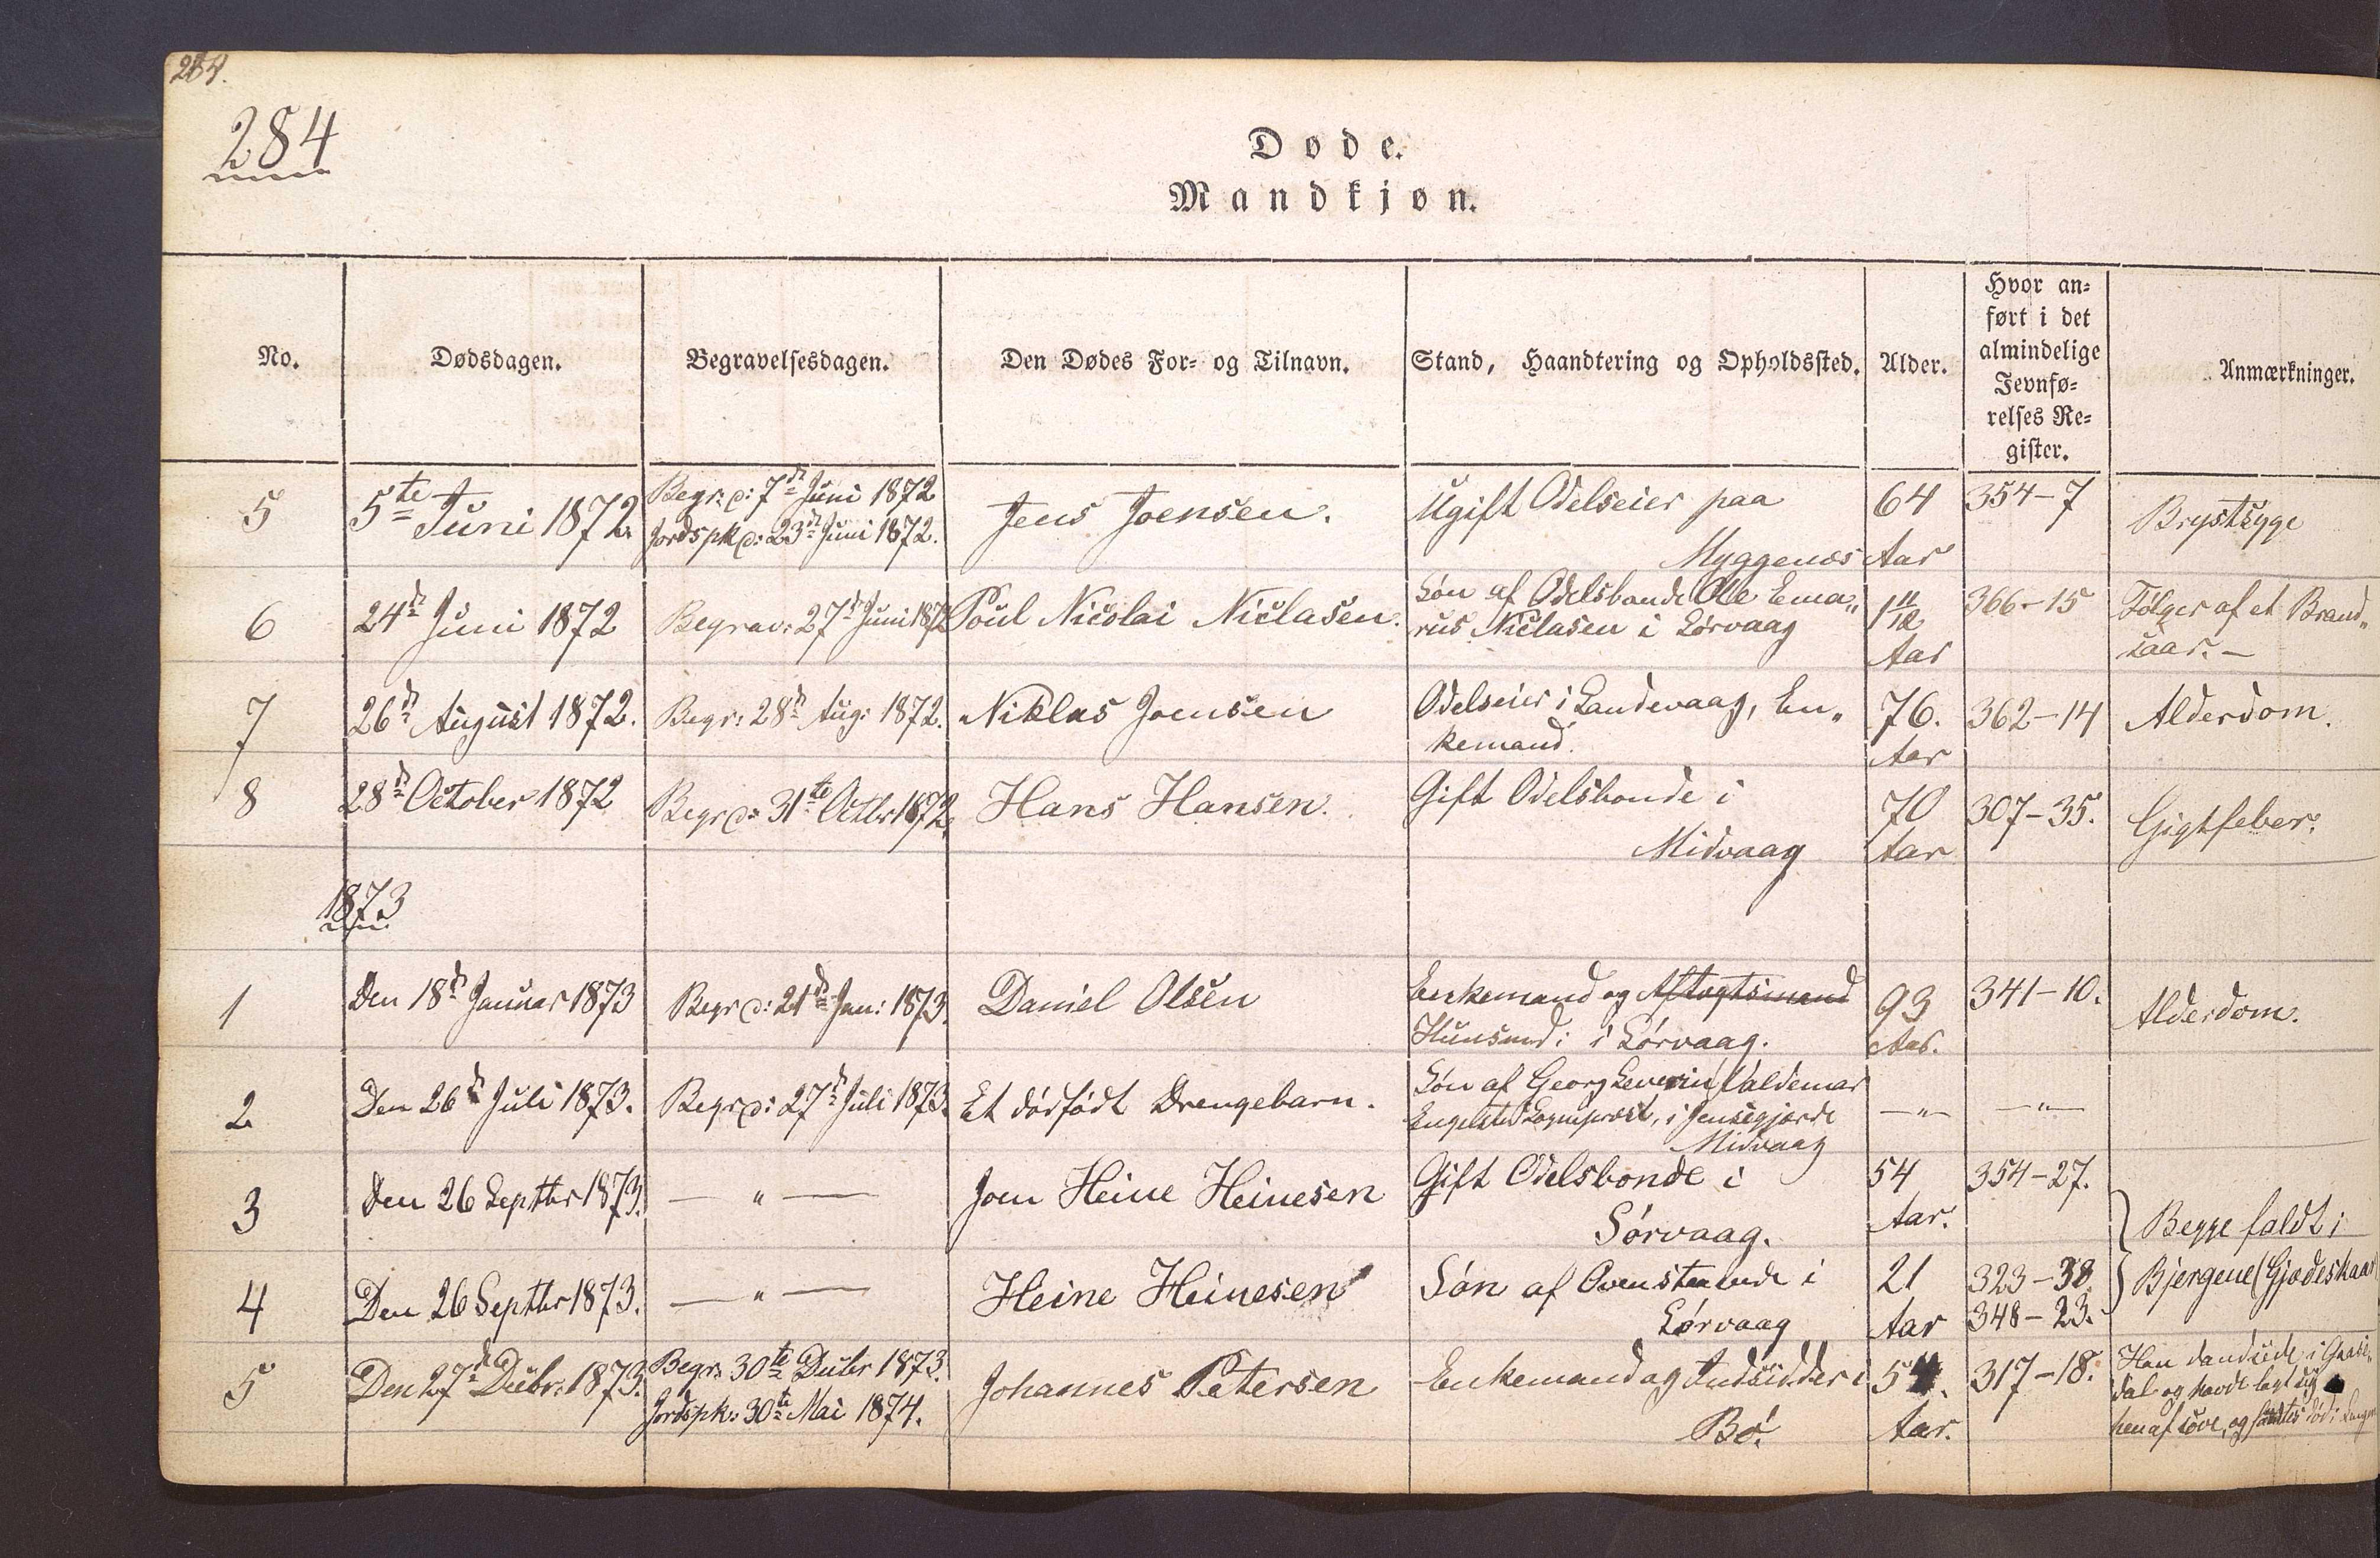 284.
284
Døde.
Mandkjøn.
No.
Dødsdagen.
Begravelsesdagen.
Den Dødes For- og Tilnavn.
Stand, Haandtering og Opholdssted.
Alder.
Hvor an-
ført i det
almindelige
Jevnfø-
relses Re-
gister.
Anmærkninger.
5
5te Juni 1872.
Begr: d: 7d Juni 1872
Jordspk d: 23d Juni 1872.
Jens Joensen.
Ugift Odelseier paa
Myggenæs
64
Aar
354-7
Brystsyge
6
24d Juni 1872
Begrav: 27d Juni 1872
Poul Nicolai Niclasen.
Søn af Odelsbonde Ole Ema„
rus Niclasen i Sørvaag
1 11/12
Aar
366-15
Følger af et Brand„
saar.-
7
26d August 1872.
Begr: 28d Aug: 1872.
Niklas Joensen
Odelseier i Sandevaag, En„
kemand.
76.
Aar
362-14
Alderdom.
8
28d October 1872
Begr d: 31te Octbr 1872.
Hans Hansen.
Gift Odelsbonde i
Midvaag
70
Aar
307-35.
Gigtfeber.
1873
1
Den 18d Januar 1873
Begr d: 21d Jan: 1873.
Daniel Olsen
Enkemand og Aftægtsmand
Huusmd: i Sørvaag.
93
Aar.
341-10.
Alderdom.
2
Den 26d Juli 1873.
Begr d: 27d Juli 1873.
Et dødfødt Drengebarn.
Søn af Georg Severin Valdemar
Engelsted Sognepræst, i Jensegjærde
Midvaag
—„—
—„—
3
Den 26 Septbr 1873.
—„—
Joen Heine Heinesen
Gift Odelsbonde i
Sørvaag.
54
Aar.
354-27.
Begge faldt i
4
Den 26 Septbr 1873.
—„—
Heine Heinesen
Søn af Ovenstaaende i
Sørvaag
21
Aar
323-38
348-23.
Bjergene (Gjødeskaar
5
Den 27d Decbr. 1873.
Begr. 30te Decbr 1873.
Jordspk: 30te Mai 1874.
Johannes Petersen
Enkemand og Indsidder i
Bø.
54.
Aar.
317-18.
Han dandsede i Gaase„
dal og havde lagt sig
hen af sove, og fandtes død i